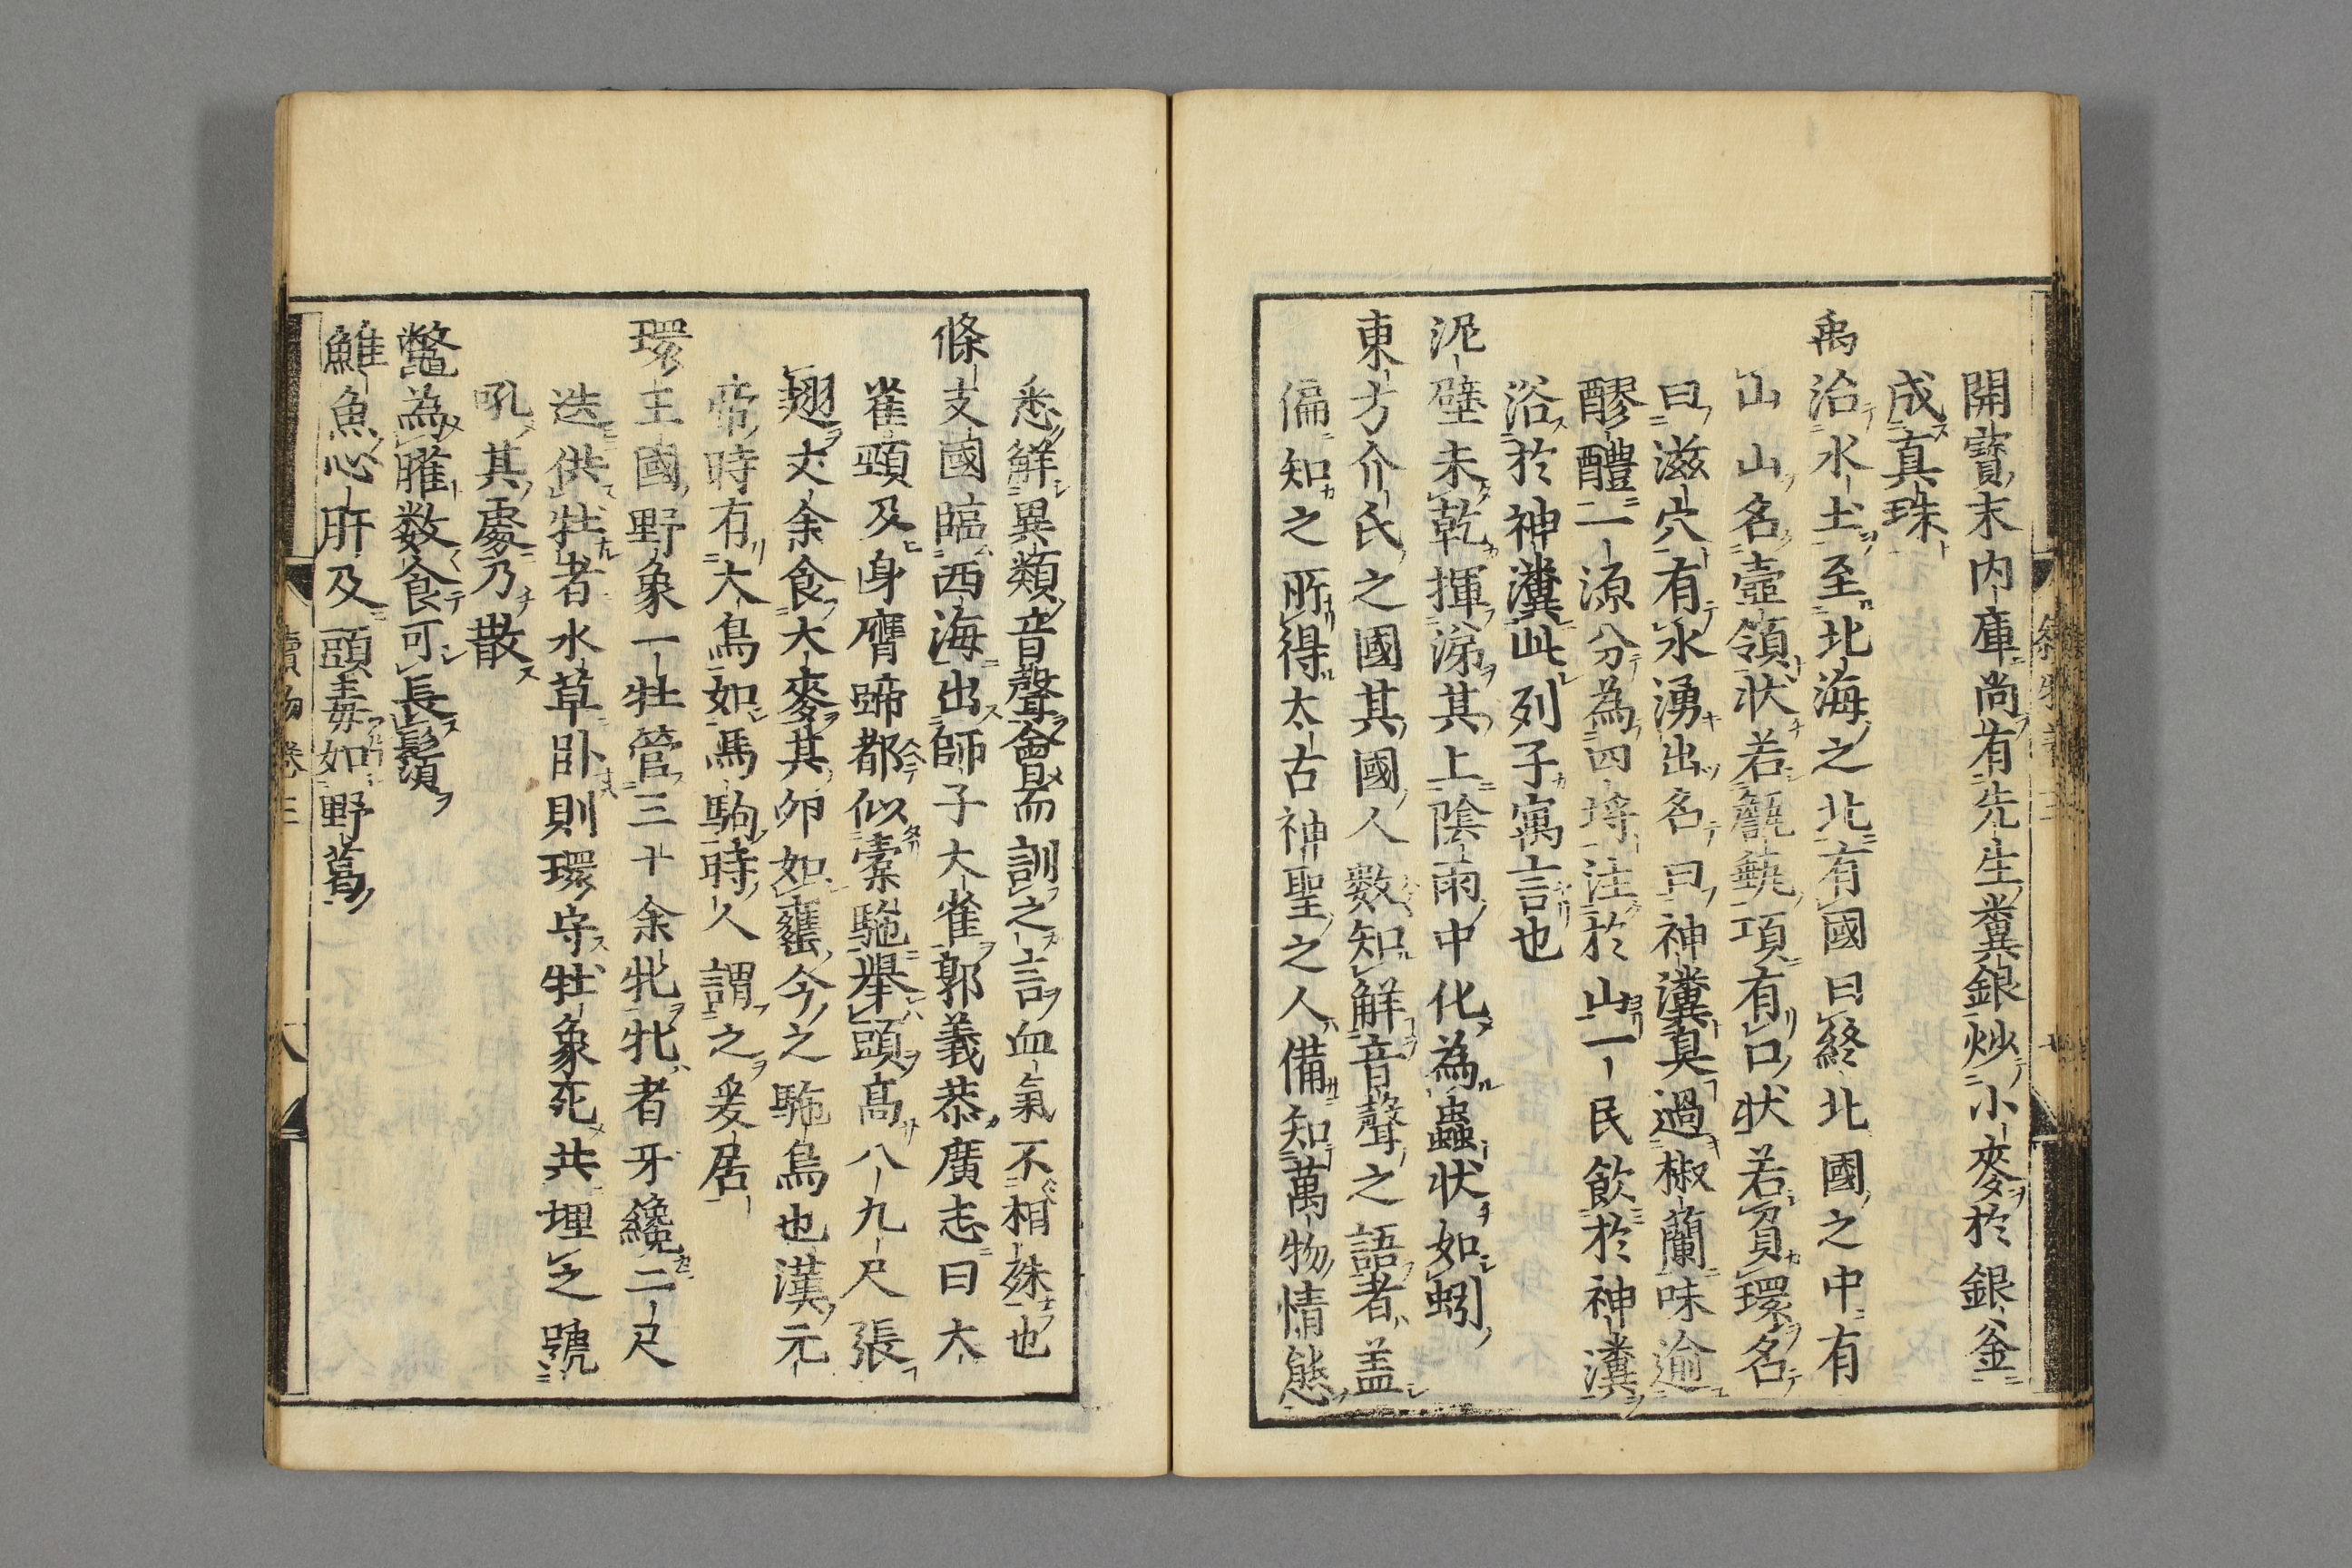 開寶末内庫尚有先生糞銀炒小麥於銀釜
成真珠
禹治水土至北海之北有國曰終北國之中有
山山名壷領状若甔甀項有口状若員環名
曰滋穴有水湧出名曰神瀵臭過椒蘭味逾
醪醴一源分為四埒注於山一民飲於神瀵
浴於神瀵此列子寓言也
泥壁未乾揮涕其上陰雨中化為蟲状如蚓
東方介氏之國其國人數知解音聲之語者盖
偏知之所得太古神聖之人備知萬物情態
悉解異類音聲會而訓之言血氣不相殊也
條支國臨西海出師子大雀郭義恭廣志曰大
雀頸及身膺蹄都似橐駞舉頭高八九尺張
翅丈余食大麥其卵如甕今之駞鳥也漢元
帝時有大鳥如馬駒時人謂之爰居
環王國野象一牡管三十余牝牝者牙纔二尺
迭供牡者水草卧則環守牡象死共埋之號
吼其處乃散
鼈為臛数食可長鬚
鯸魚心肝及頭毒如野葛
續物 卷三